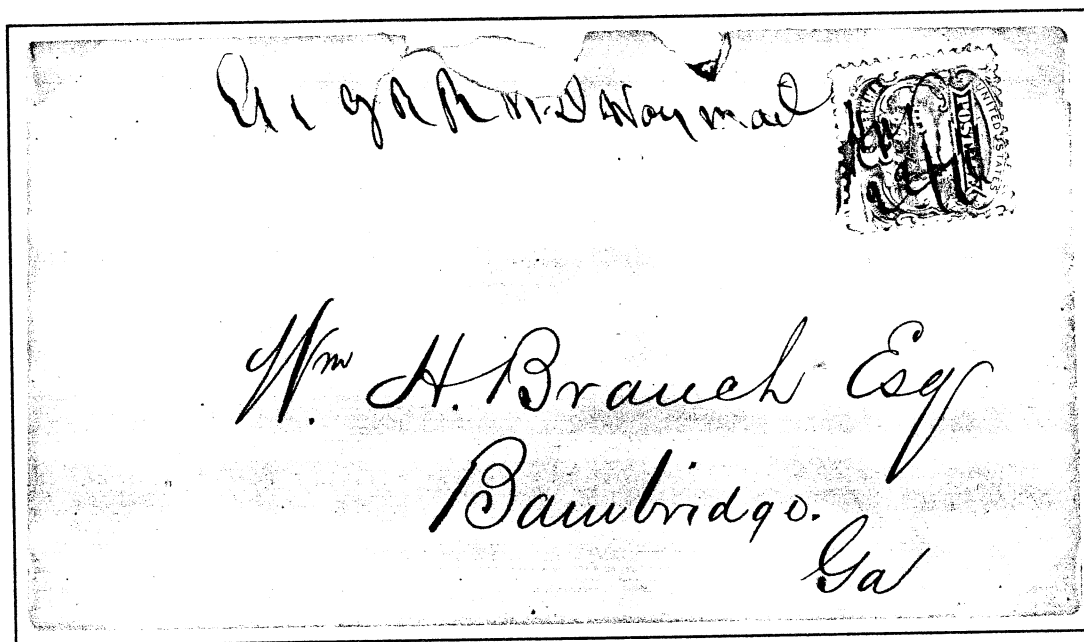 R R Way mail
UNITED STATES
POSTAGE
Wm H. Branch Esq
Bainbridge.
Ga